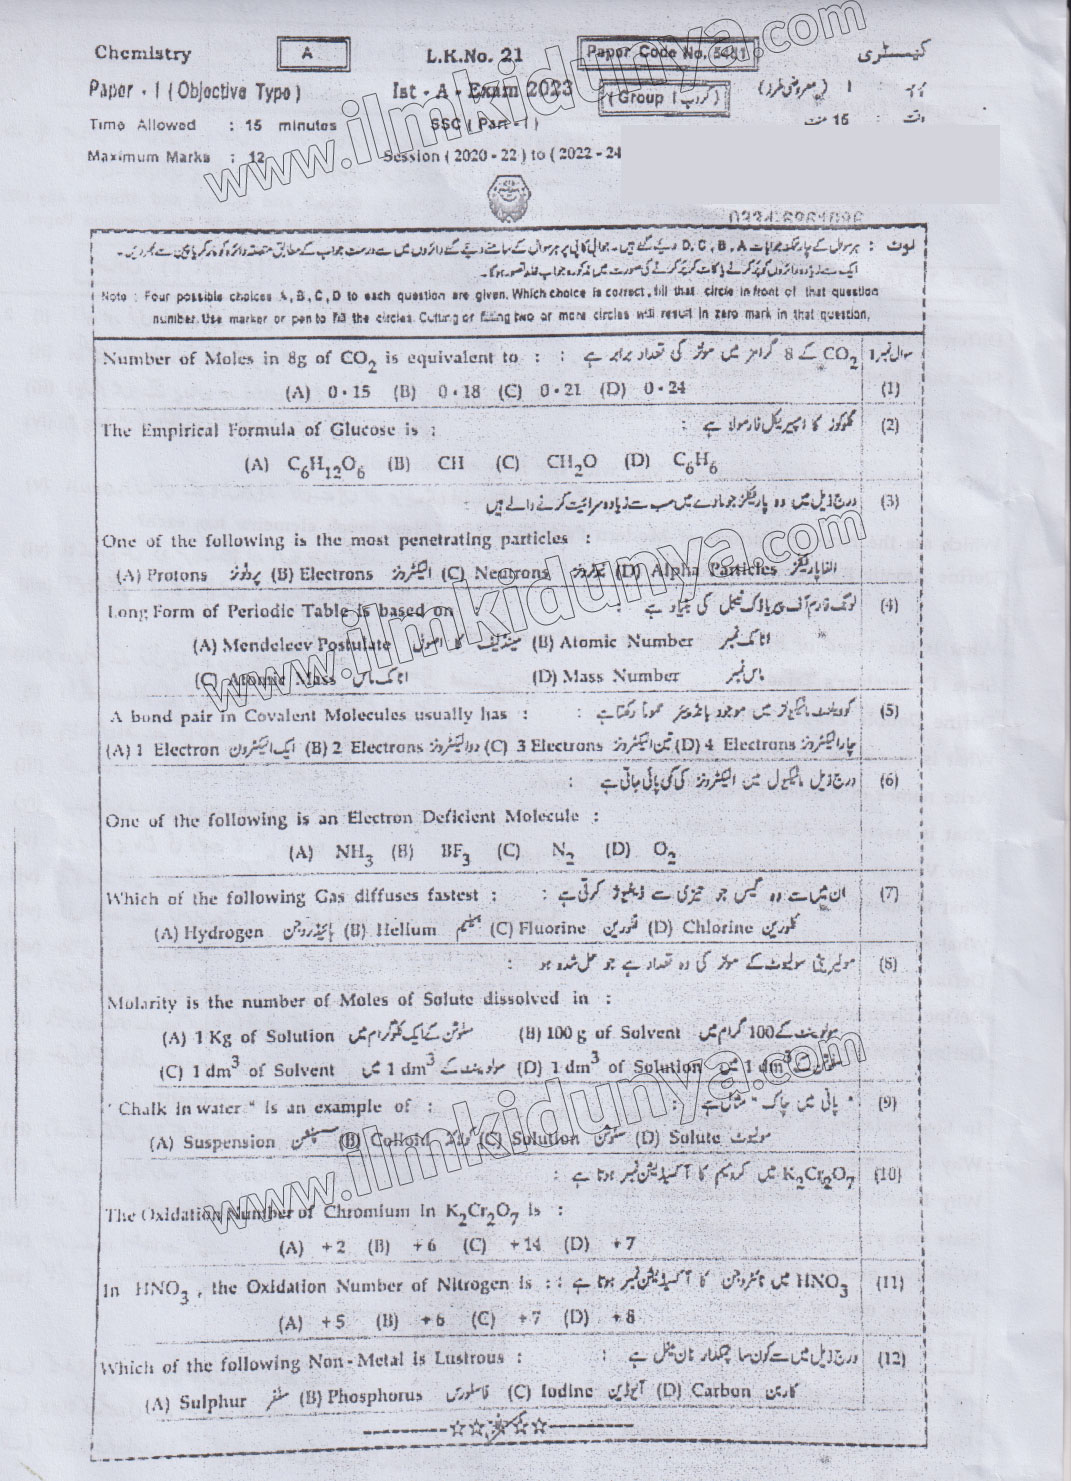 Chemistry A L.K.No. 21 Paper Code No. 5481 کیمسٹری
Paper - I (Objective Type) Ist - A - Exam 2023 (Group I گروپ) (معروضی طرز) I پرچہ
Time Allowed : 15 minutes SSC (Part - I) 15 منٹ : وقت
Maximum Marks : 12 Session (2020 - 22) to (2022 - 24
نوٹ : ہر سوال کے چار ممکنہ جوابات D, C, B, A دیئے گئے ہیں۔ جوابی کاپی پر ہر سوال کے سامنے دیئے گئے دائروں میں سے درست جواب کے مطابق متعلقہ دائرہ کو مارکر یا پین سے بھر دیں۔
ایک سے زیادہ دائروں کو پُر کرنے یا کاٹ کر پُر کرنے کی صورت میں مذکورہ جواب غلط تصور ہوگا۔
Note : Four possible choices A, B, C, D to each question are given. Which choice is correct, fill that circle in front of that question
number. Use marker or pen to fill the circles. Cutting or filling two or more circles will result in zero mark in that question.
Number of Moles in 8g of CO2 is equivalent to : : CO2 کے 8 گرامز میں مولز کی تعداد برابر ہے سوال نمبر 1
(A) 0.15 (B) 0.18 (C) 0.21 (D) 0.24 (1)
The Empirical Formula of Glucose is : : گلوکوز کا امپیریکل فارمولا ہے (2)
(A) C6H12O6 (B) CH (C) CH2O (D) C6H6
درج ذیل میں وہ پارٹیکلز جو مادے میں سب سے زیادہ سرائیت کرنے والے ہیں (3)
One of the following is the most penetrating particles :
(A) Protons پروٹونز (B) Electrons الیکٹرونز (C) Neutrons نیوٹرونز (D) Alpha Particles الفا پارٹیکلز
Long Form of Periodic Table is based on : : لونگ فارم آف پیریاڈک ٹیبل کی بنیاد ہے (4)
(A) Mendeleev Postulate مینڈلیف کا اصول (B) Atomic Number اٹامک نمبر
(C) Atomic Mass اٹامک ماس (D) Mass Number ماس نمبر
A bond pair in Covalent Molecules usually has : : کوویلنٹ مالیکیولز میں موجود بانڈ پیئر عموماً رکھتا ہے (5)
(A) 1 Electron ایک الیکٹرون (B) 2 Electrons دو الیکٹرونز (C) 3 Electrons تین الیکٹرونز (D) 4 Electrons چار الیکٹرونز
: درج ذیل مالیکیول میں الیکٹرونز کی کمی پائی جاتی ہے (6)
One of the following is an Electron Deficient Molecule :
(A) NH3 (B) BF3 (C) N2 (D) O2
Which of the following Gas diffuses fastest : : ان میں سے وہ گیس جو تیزی سے ڈفیوژ کرتی ہے (7)
(A) Hydrogen ہائیڈروجن (B) Helium ہیلیم (C) Fluorine فلورین (D) Chlorine کلورین
: مولیریٹی سولیوٹ کے مولز کی وہ تعداد ہے جو حل شدہ ہو (8)
Molarity is the number of Moles of Solute dissolved in :
(A) 1 Kg of Solution سلوشن کے ایک کلوگرام میں (B) 100 g of Solvent سولوینٹ کے 100 گرام میں
(C) 1 dm3 of Solvent سولوینٹ کے 1 dm3 میں (D) 1 dm3 of Solution سلوشن کے 1 dm3 میں
" Chalk in water " is an example of : : " پانی میں چاک " مثال ہے (9)
(A) Suspension سسپنشن (B) Colloid کولائیڈ (C) Solution سلوشن (D) Solute سولیوٹ
: K2Cr2O7 میں کرومیم کا آکسیڈیشن نمبر ہوتا ہے (10)
The Oxidation Number of Chromium in K2Cr2O7 is :
(A) +2 (B) +6 (C) +14 (D) +7
In HNO3 , the Oxidation Number of Nitrogen is : : HNO3 میں نائٹروجن کا آکسیڈیشن نمبر ہوتا ہے (11)
(A) +5 (B) +6 (C) +7 (D) +8
Which of the following Non - Metal is Lustrous : : درج ذیل میں سے کون سا چمکدار نان میٹل ہے (12)
(A) Sulphur سلفر (B) Phosphorus فاسفورس (C) Iodine آیوڈین (D) Carbon کاربن
www.ilmkidunya.com
www.ilmkidunya.com
www.ilmkidunya.com